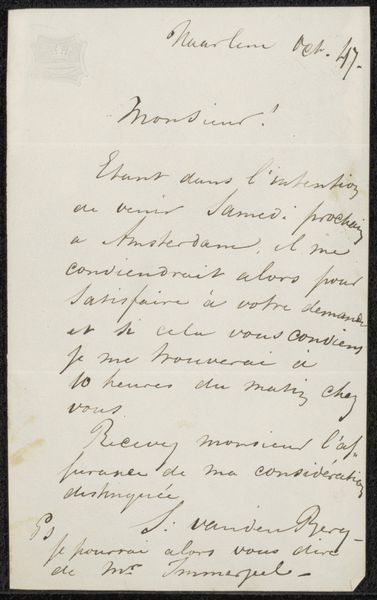 Haarlem Oct. 47.
Monsieur!
Etant dans l'intention
de venir Samedi prochain
a Amsterdam, il me
conviendrait alors pour
satisfaire à votre demande
et si cela vous convient
je me trouverai à
10 heures du matin chez
vous
Recevez monsieur l'as-
surance de ma considération
distinguée
S. van den Berg
Ps
je pourrai alors vous dire
de Mr Immerzeel